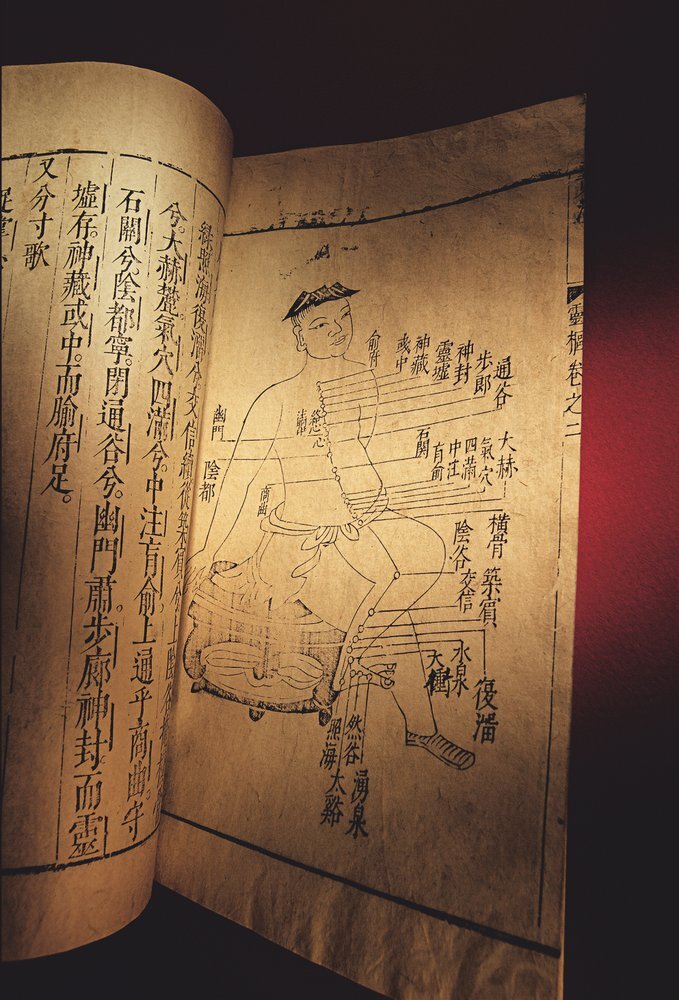 靈樞卷之二
通谷
步郎
神封
靈墟
神藏
或中
俞府
大赫
氣穴
四滿
中注
肓俞
石關
橫骨
陰谷
築賓
交信
水泉
復溜
然谷
照海
湧泉
太谿
幽門
陰都
商曲
照海復溜兮交信續從築賓
兮。大赫麓氣穴四滿兮。中注肓俞上通乎商曲守
石關兮。陰都寧。閉通谷兮。幽門肅。步廊神封而靈
墟存。神藏或中。而腧府足。
又分寸歌